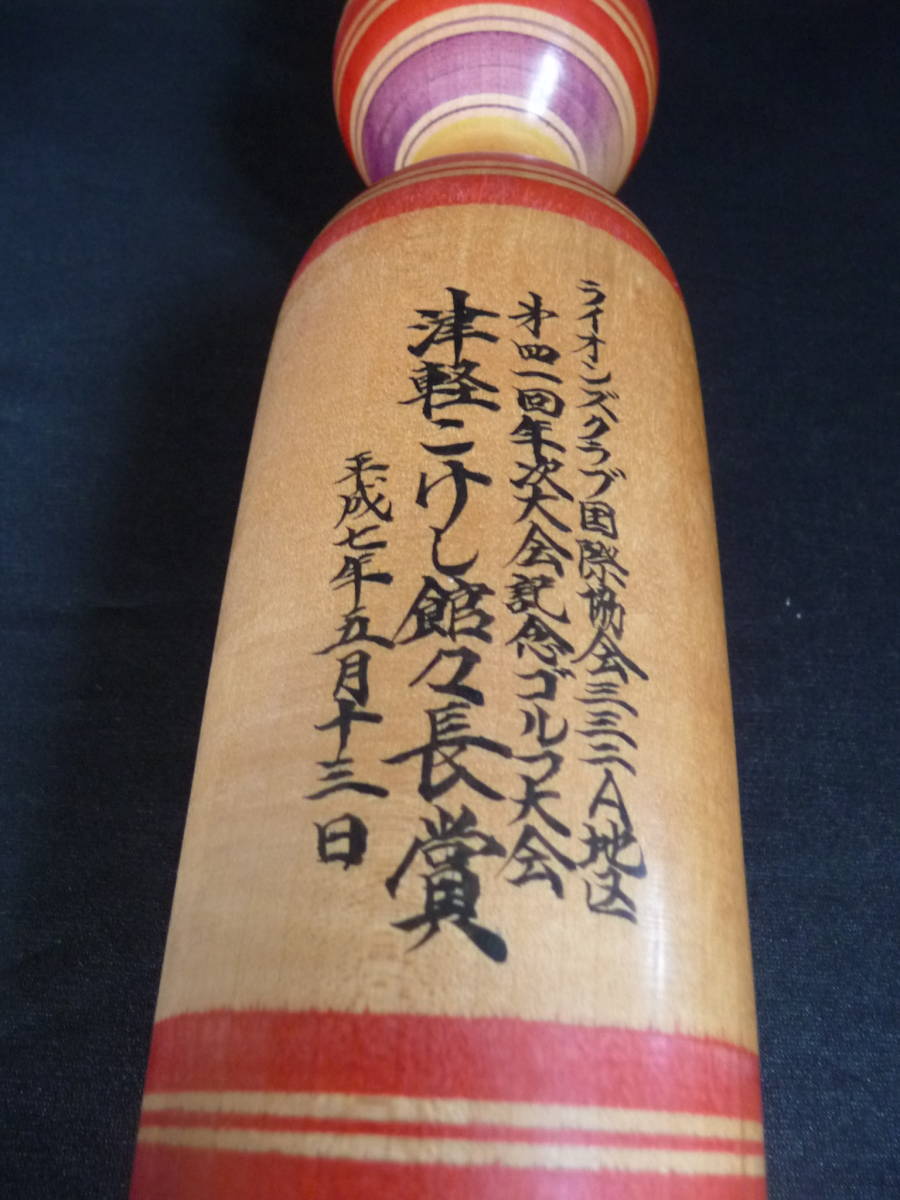 ライオンズクラブ国際協会三三二A地区
第四一回年次大会記念ゴルフ大会
津軽こけし館々長賞
平成七年五月十三日